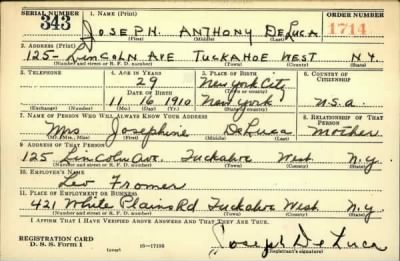 SERIAL NUMBER 1. NAME (Print) ORDER NUMBER
343 JOSEPH ANTHONY DELUCA 1714
(First) (Middle) (Last)
2. ADDRESS (Print)
125- LINCOLN AVE TUCKAHOE WEST N.Y.
(Number and street or R. F. D. number) (Town) (County) (State)
3. TELEPHONE 4. AGE IN YEARS 5. PLACE OF BIRTH 6. COUNTRY OF CITIZENSHIP
29 New York City
DATE OF BIRTH (Town or county)
11 16 1910 New York U.S.a.
(Exchange) (Number) (Mo.) (Day) (Yr.) (State or country)
7. NAME OF PERSON WHO WILL ALWAYS KNOW YOUR ADDRESS 8. RELATIONSHIP OF THAT PERSON
Mrs Josephine DeLuca Mother
(Mr., Mrs., Miss) (First) (Middle) (Last)
9. ADDRESS OF THAT PERSON
125 Lincoln Ave. Tuckahoe West. N.y.
(Number and street or R. F. D. number) (Town) (County) (State)
10. EMPLOYER'S NAME
Leo Fromer
11. PLACE OF EMPLOYMENT OR BUSINESS
421 White Plains Rd Tuckahoe West. N.y.
(Number and street or R. F. D. number) (Town) (County) (State)
I AFFIRM THAT I HAVE VERIFIED ABOVE ANSWERS AND THAT THEY ARE TRUE.
REGISTRATION CARD
D. S. S. Form 1 (over) 16—17105 Joseph De Luca
(Registrant's signature)